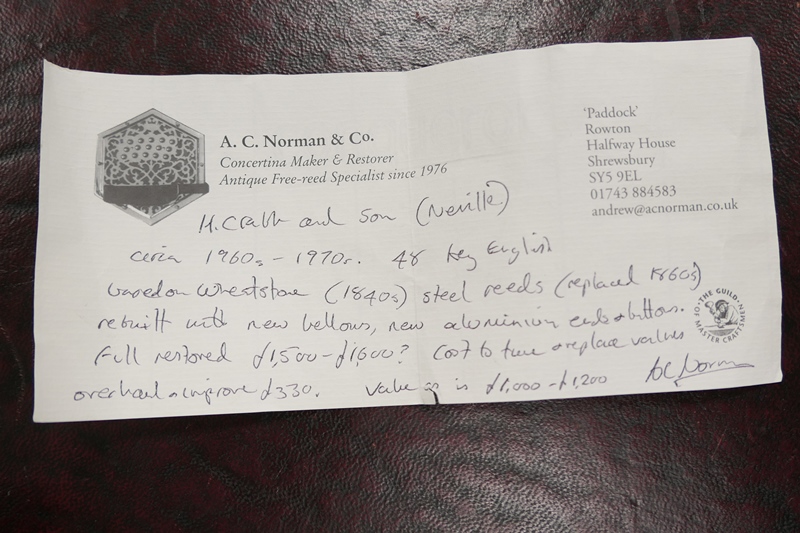 A. C. Norman & Co.
Concertina Maker & Restorer
Antique Free-reed Specialist since 1976
'Paddock'
Rowton
Halfway House
Shrewsbury
SY5 9EL
01743 884583
andrew@acnorman.co.uk
H. Crabb and Son (Neville)
circa 1960s - 1970s. 48 key English
based on Wheatstone (1840s) steel reeds (replaced 1860s)
rebuilt with new bellows, new aluminium ends & buttons.
Full restored £1,500 - £1,600? Cost to tune & replace valves
overhaul & improve £330. Value as is £1,000 - £1,200
AC Norman
·THE GUILD· OF MASTER CRAFTSMEN